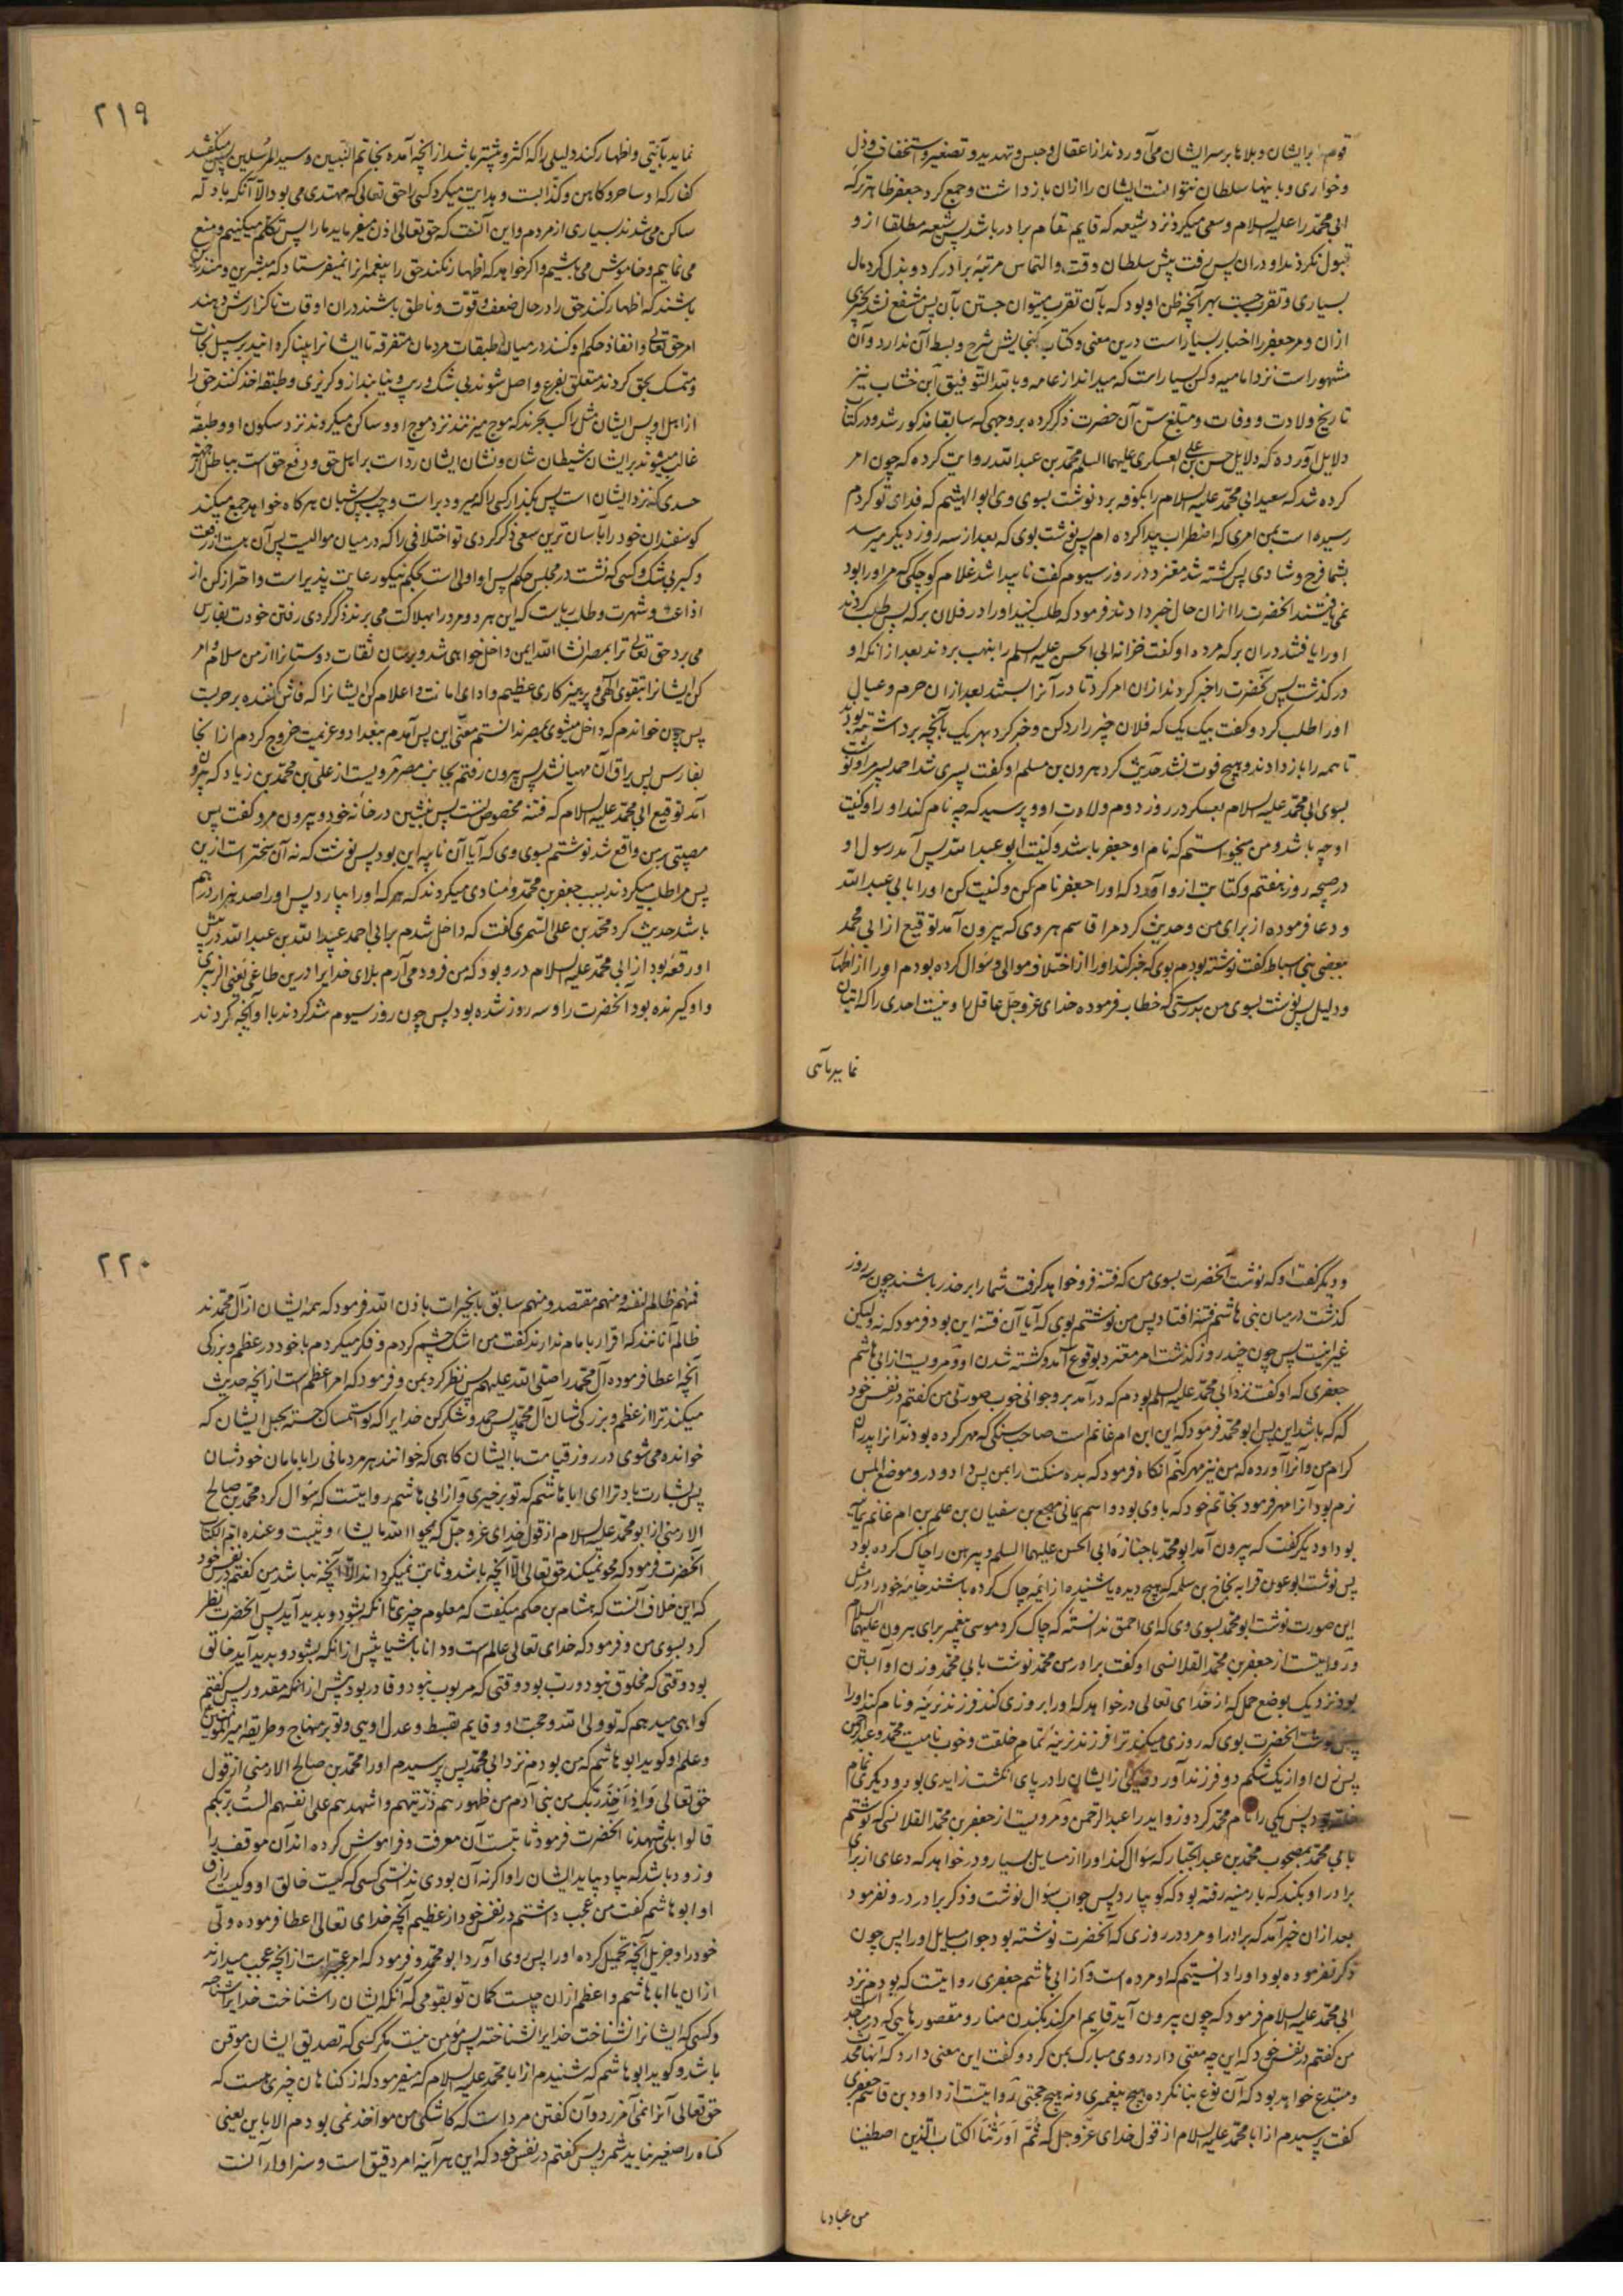 قوم برایشان و بلاها بر سر ایشان می‌آوردند از اعتقال و حبس و تهدید و تصغیر و استخفاف و ذل
و خواری و با اینها سلطان نتوانست ایشان را ازان بازداشت و جمع کرد جعفر ظاهر ترکه
ابی محمد را علیه السلام و سعی میکرد نزد شیعه که قایم مقام برادر باشد پس شیعه مطلقا ازو
قبول نکردند او دران پس رفت پیش سلطان وقت و التماس مرتبهٔ برادر کرد و بذل کرد مال
بسیاری و تقرب جست بهر آنچه ظن او بود که بآن تقرب میتوان جستن بآن پس منتفع نشد بچیزی
ازان و مر جعفر را اخبار بسیار است درین معنی و کتاب گنجایش شرح و بسط آن ندارد و آن
مشهور است نزد امامیه و کسی بسیار است که میداند از عامه و بالله التوفیق ابن خشاب نیز
تاریخ ولادت و وفات و مبلغ سن آن حضرت ذکر کرده بر وجهی که سابقا مذکور شد و در کتاب
دلایل آورده که دلایل حسن بن علی العسکری علیهما السلم محمد بن عبدالله روایت کرده که چون امر
کرده شد که سعید ابی محمد علیه السلام را بکوفه برد نوشت بسوی وی ابو الهیثم که فدای تو کردم
رسیده است بمن امری که اضطراب پیدا کرده‌ام پس نوشت بوی که بعد از سه روز دیگر میرسد
بشما فرح و شادی پس کشته شد معتز در روز سیوم گفت ناپیدا شد غلام کوچکی که مر او را بود
نمی‌یافتند انحضرت را ازان حال خبر دادند فرمود که طلب کنید او را در فلان برکه پس طلب کردند
او را یافتند دران برکه مرده او گفت خزانه ابی الحسن علیه السلم را بنهب بردند بعد از انکه او
درگذشت پس آنحضرت را خبر کردند ازان امر کرد تا در آنرا ببستند بعد ازان حرم و عیال
او را طلب کرد و گفت بیک یک که فلان چیز را رد کن و خبر کرد بهر یک بآنچه برداشته بودند
تا همه را باز دادند و هیچ فوت نشد حدیث کرد هرون بن مسلم او گفت پسری شد احمد پسر او نوشت
بسوی ابی محمد علیه السلام بعسکر در روز دوم ولادت او و پرسید که چه نام کند او را و کنیت
او چه باشد و من میخواستم که نام او جعفر باشد و کنیت ابو عبد الله پس آمد رسول او
در صبحه روز هفتم و کتابت ازو آورد که او را جعفر نام کن و کنیت کن او را بابی عبدالله
و دعا فرموده از برای من و حدیث کرد مرا قاسم هروی که بیرون آمد توقیع از ابی محمد
ببعضی بنی اسباط گفت نوشته بودم بوی که خبر کند او را از اختلاف موالی و سوال کرده بودم او را از اظهار
و دلیل پس نوشت بسوی من بدرستی که خطاب فرموده خدای عز و جل عاقل را و نیست احدی را که اتیان
نماید بآیتی
۲۱۹
نماید بآیتی و اظهار کند دلیلی را که اکثر و بیشتر باشد از انچه آمده بخاتم النبیین و سید المرسلین پس میگفتند
کفار که او ساحر و کاهن و کذابست و هدایت میکرد کسی را حق تعالی که مهتدی می‌بود الا آنکه بادله
ساکن می‌شدند بسیاری از مردم و این آنست که حق تعالی اذن میفرماید ما را پس تکلم میکنیم و منع
می‌نمایم و خاموش می‌باشیم و اگر خواهد که اظهار نکند حق را پیغمبرانرا نمیفرستاد که مبشرین و منذرین
باشند که اظهار کنند حق را در حال ضعف و قوت و ناطق باشند دران اوقات تا گزارش دهند
امر حق تعالی و انفاذ حکم او کنند در میان طبقات مردمان متفرقه تا ایشانرا بینا گردانیدبر سبیل نجات
و متمسک بحق گردند متعلق بفرع و اصل شوند بی شک و ریب و نیابند ازو گریزی و طبقه اخذ کنند حق را
از اهل او پس ایشان مثل راکب بحرند که موج میزنند نزد موج او و ساکن میگردند نزد سکون او و طبقهٔ
غالب میشوند بر ایشان شیطان شان و نشان ایشان رد است بر اهل حق و دفع حق است بباطل از جهت
حسدی که نزد ایشان است پس بگذار کسی را که میرود براست و چپ پس شبان هرگاه خواهد جمع میکند
گوسفندان خود را بآسان ترین سعی ذکر کردی تو اختلافی را که در میان موالیست پس آن هست از رفعت
و کبر بی شک و کسی که نشست در مجلس حکم پس او اولی است بحکم نیکو رعایت پذیر است و احتراز کن از
اذاعت و شهرت و طلب ریاست که این هر دو مرد را بهلاکت می‌برند ذکر کردی رفتن خودت بفارس
می‌برد حق تعالی ترا بمصر انشاء الله ایمن و داخل خواهی شد و برسان ثقات دوستانرا از من سلام و امر
کن ایشانرا بتقوی الهی و پرهیزکاری عظیم و ادای امانت و اعلام کن ایشانرا که فاش کننده بر حربست
پس چون خواندم که داخل میشوی بمصر ندانستم معنی این پس آمدم ببغداد و عزیمت خروج کردم از انجا
بفارس پس یراق آن مهیا نشد پس بیرون رفتم بجانب مصر مرویست از علی بن محمد بن زیاد که بیرون
آمد توقیع ابی محمد علیه السلام که فتنه مخصوص تست پس بنشین در خانه خود و بیرون مرو گفت پس
مصیبتی بمن واقع شد نوشتم بسوی وی که آیا آن نایبه این بود پس نوشت که نه آن سختر است ازین
پس مرا طلب میکردند بسبب جعفر بن محمد و منادی میکردند که هر که او را بیارد پس او را صد هزار درهم
باشد حدیث کرد محمد بن علی السمری گفت که داخل شدم بر ابی احمد عبید الله بن عبدالله در پیش
او رقعهٔ بود از ابی محمد علیه السلام درو بود که من فرود می‌آرم بلای خدایرا درین طاغی یعنی الزبیری
و او گیرنده بود آنحضرت را و سه روز شده بود پس چون روز سیوم شد کردند با او آنچه کردند
و دیگر گفت او که نوشت آنحضرت بسوی من که فتنه فرو خواهد گرفت شما را بر حذر باشند چون سه روز
گذشت درمیان بنی هاشم فتنه افتاد پس من نوشتم بوی که آیا آن فتنه این بود فرمود که نه ولیکن
غیر اینست پس چون چند روز گذشت امر معتز بوقوع آمد و کشته شدن او و مرویست از ابی هاشم
جعفری که او گفت نزد ابی محمد علیه السلم بودم که درآمد برو جوانی خوب صورتی من گفتم در نفس خود
که که باشد این پس ابو محمد فرمود که این ابن ام غانم است صاحب سنگی که مهر کرده بودند آنرا پدران
کرام من و آنرا آورده که من نیز مهر کنم آنگاه فرمود که بده سنگت را بمن پس داد و در و موضع املس
نرم بود آنرا مهر فرمود بخاتم خود که با وی بود و اسم یمانی مهجع بن سفیان بن علم بن ام غانم یمانیه
بود او دیگر گفت که بیرون آمد ابو محمد با جنازه ابی الحسن علیهما السلم و پیرهن را چاک کرده بود
پس نوشت ابو عون قرابه نجاح بن سلمه که هیچ دیده یا شنیده از ایمه چاک کرده باشند جامهٔ خود را در مثل
این صورت نوشت ابو محمد بسوی وی که ای احمق ندانستهٔ که چاک کرد موسی پیغمبر برای هرون علیهما السلام
و روایتست از جعفر بن محمد القلانسی او گفت برادرم محمد نوشت بابی محمد و زن او آبستن
بود نزدیک بوضع حمل که از خدای تعالی درخواهد که او را بروزی کند فرزند نرینه و نام کند او را
پس نوشت آنحضرت بوی که روزی میکند ترا فرزند نرینهٔ تمام خلقت و خوب نامیست محمد و عبدالرحمن
پس زن او از یک شکم دو فرزند آورد و یکی زایشان را در پای انگشت زایدی بود و دیگری تمام
خلقت بود پس یکی را نام محمد کرد و زواید را عبدالرحمن و مرویست از جعفر بن محمد القلانسی که نوشتم
بابی محمد بمصحوب محمد بن عبدالجبار که سوال کند او را از مسایل بسیار و درخواهد که دعای از برای
برادر او بکند که بارمنیه رفته بود که گو بیارد پس جواب سوال نوشت و ذکر برادر درو نفرمود
بعد ازان خبر آمد که برادر او مرد در روزی که آنحضرت نوشته بود جواب مسایل او را پس چون
ذکر نفرموده بود او را دانستیم که او مرده است و از ابی هاشم جعفری روایتست که بودم نزد
ابی محمد علیه السلام فرمود که چون بیرون آید قایم امر کند بکندن منار و مقصورهایی که در مساجد است
من گفتم در نفس خود که این چه معنی دارد روی مبارک بمن کرد و گفت این معنی دارد که آنها محدث
و مبتدع خواهد بود که آن نوع بنا نکرده هیچ پیغمبری و نه هیچ حجتی روایتست از داود بن قاسم جعفری
گفت پرسیدم از ابا محمد علیه السلام از قول خدای عز و جل که ثُمَّ اَورَثْنَا الکتاب الذین اصطفینا
من عبادنا
۲۲۰
فمنهم ظالم لنفسه و منهم مقتصد و منهم سابق بالخیرات باذن الله فرمود که همه ایشان از آل محمدند
ظالم آنانند که اقرار بامام ندارند گفت من اشک چشم کردم و فکر میکردم با خود در عظم و بزرگی
آنچه اعطا فرموده آل محمد را صلی الله علیهم پس نظر کرد بمن و فرمود که امر اعظم است از انچه حدیث
میکند ترا از عظم و بزرگی شان آل محمد پس حمد و شکر کن خدایرا که تو استمساک جسته بحبل ایشان که
خوانده می‌شوی در روز قیامت با ایشان گاهی که خوانند هر مردمانی را بامامان خودشان
پس بشارت باد ترا ای ابا هاشم که تو بر خیری و از ابی هاشم روایتست که سوال کرد محمد بن صالح
الارمنی از ابو محمد علیه السلام از قول خدای عز و جل که یمحوا الله ما یشاء و یثبت و عنده ام الکتاب
آنحضرت فرمود که محو نمیکند حق تعالی الا آنچه باشد و ثابت نمیگرداند الا آنچه نباشد من گفتم در نفس خود
که این خلاف آنست که هشام بن حکم میگفت که معلوم چیزی تا انکه بشود و پدید آید پس آنحضرت نظر
کرد بسوی من و فرمود که خدای تعالی عالم است و دانا باشیا پیش از انکه بشود و پدید آید خالق
بود وقتی که مخلوق نبود و رب بود وقتی که مربوب نبود و قادر بود پیش از انکه مقدور پس گفتم
گواهی میدهم که تو ولی الله و حجت او و قایم بقسط و عدل اویی و تو بر منهاج و طریقه امیر المومنین
و علم او گوید ابو هاشم که من بودم نزد ابی محمد پس پرسیدم او را محمد بن صالح الارمنی از قول
حق تعالی وَاِذْ اَخَذَ رَبُّکَ من بنی آدم من ظهورهم ذریتهم و اشهدهم علی انفسهم الست بربکم
قالوا بلی شهدنا آنحضرت فرمود ثابتست آن معرفت و فراموش کرده‌اند آن موقف را
و زود باشد که بیاد بیاید ایشان را و اگر نه آن بودی ندانستی کسی که کیست خالق او و کیست رازق
او ابو هاشم گفت من عجب داشتم در نفس خود از عظیم آنچه خدای تعالی اعطا فرموده ولی
خود را و جزیل آنچه تحمیل کرده او را پس روی آورد ابو محمد و فرمود که امر عجبتر است از انچه عجب میدارند
ازان یا ابا هاشم و اعظم ازان چیست گمان تو بقومی که آنکه ایشان را شناخت خدایرا شناخته
و کسی که ایشانرا نشناخت خدایرا نشناخته پس مومن نیست مگر کسی که تصدیق ایشان موقن
باشد و گوید ابو هاشم که شنیدم از ابا محمد علیه السلام که میفرمود که از گناهان چیزی هست که
حق تعالی آنرا نمی‌آمرزد و آن گفتن مرد است که کاشکی من مواخذ نمی‌بودم الا باین یعنی
گناه را صغیر نباید شمرد پس گفتم در نفس خود که این هر آینه امر دقیق است و سزاوار آنست